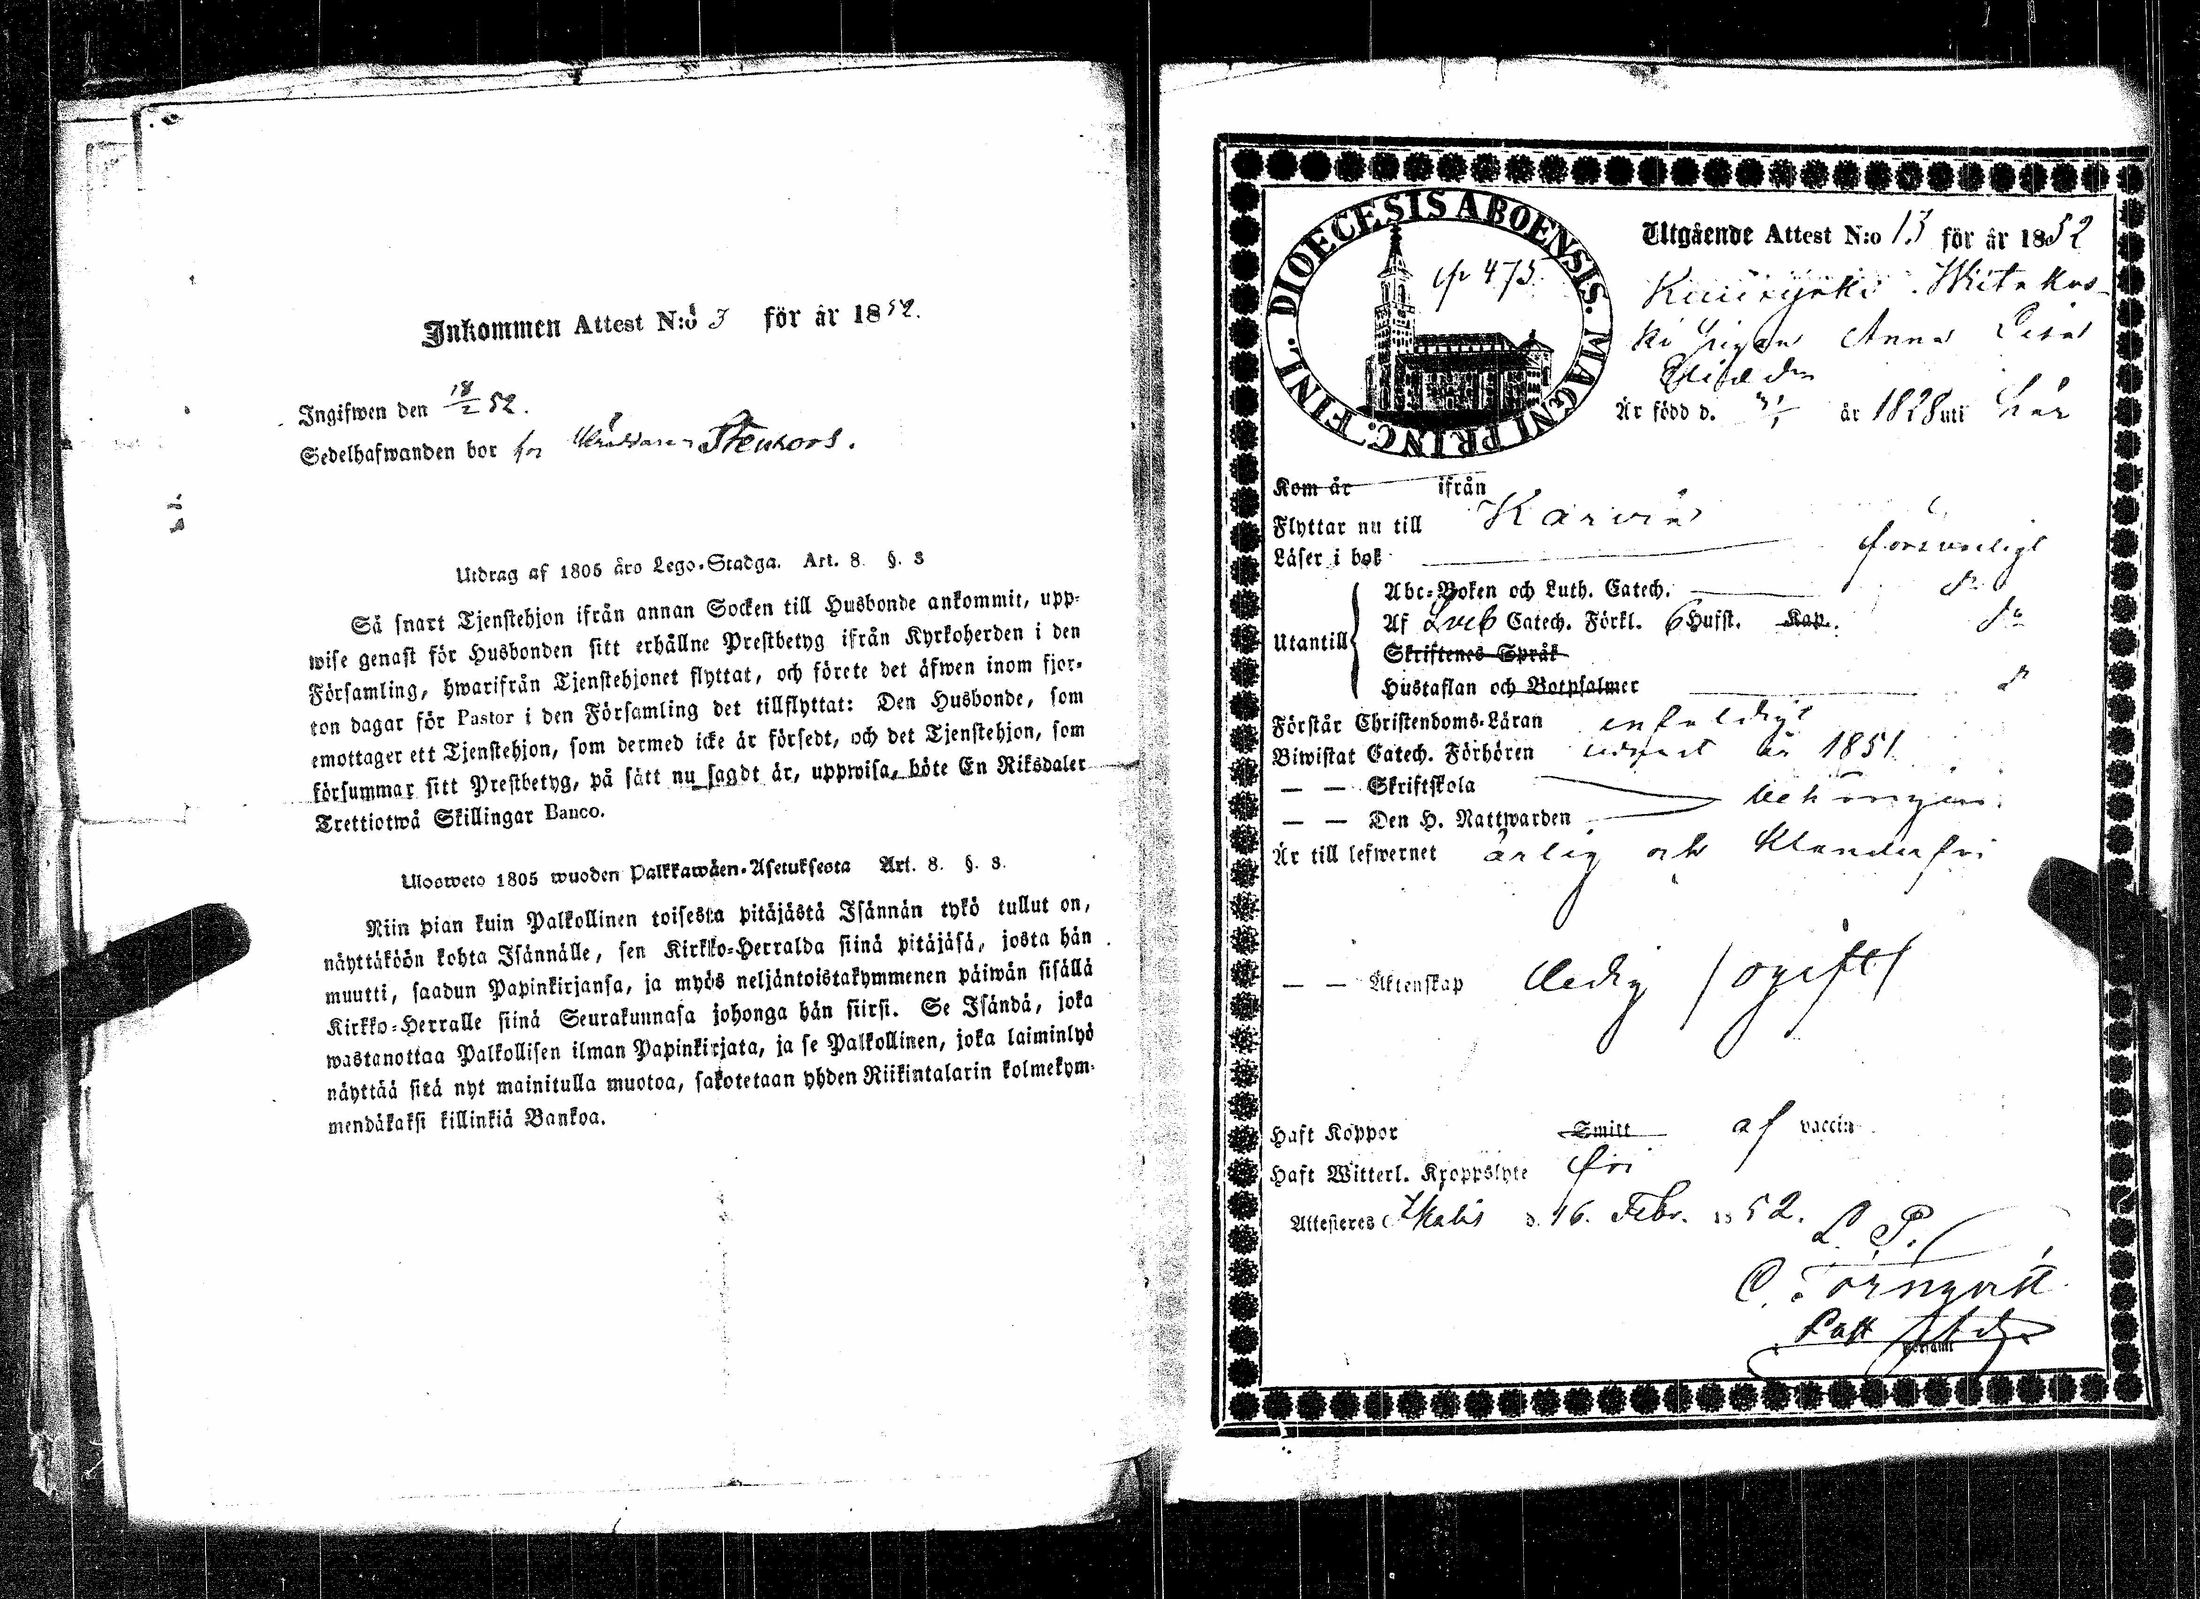 Inkommen Attest N:o 3 för år 1852.
Ingifwen den 18/2 52.
Sedelhafwanden bor for Stenroos.
Utdrag af 1805 års Lego-Stadga. Art. 8. §. 3
Så snart Tjenstehjon ifrån annan Socken till Husbonde ankommit, upp-
wise genast för Husbonden sitt erhållne Prestbetyg ifrån Kyrkoherden i den
Församling, hwarifrån Tjenstehjonet flyttat, och förete det äfwen inom fjor-
ton dagar för Pastor i den Församling det tillflyttat: Den Husbonde, som
emottager ett Tjenstehjon, som dermed icke är försedt, och det Tjenstehjon, som
försummar sitt Prestbetyg, på sätt nu sagdt är, uppwisa, böte En Riksdaler
Trettiotwå Skillingar Banco.
Ulosweto 1805 wuoden Palkkawäen-Asetuksesta Art. 8. §. 3.
Niin pian kuin Palkollinen toisesta pitäjästä Isännän tykö tullut on,
näyttäköön kohta Isännälle, sen Kirkko-Herralda siinä pitäjäsä, josta hän
muutti, saadun Papinkirjansa, ja myös neljäntoistakymmenen päiwän sisällä
Kirkko-Herralle siinä Seurakunnasa johonga hän siirsi. Se Isändä, joka
wastanottaa Palkollisen ilman Papinkirjata, ja se Palkollinen, joka laiminlyö
näyttää sitä nyt mainitulla muotoa, sakotetaan yhden Riikintalarin kolmekym-
mendäkaksi killinkiä Bankoa.
DIOECESIS ABOENSIS. MAGNI PRINC. FINL.
p 475.
Utgående Attest N:o 13 för år 1852
Pigan Anna Lisa
Är född d. år 1828 uti här
Kom år ifrån
Flyttar nu till Karvia
Läser i bok försvarligt
Utantill
Abc-Boken och Luth. Catech. do
Af Sveb Catech. Förkl. 6 Hufst. Kap. do
Skriftenes Språk
Hustaflan och Botpsalmer do
Förstår Christendoms-Läran enfaldigt
Biwistat Catech. Förhören sednast år 1851
— — Skriftskola
— — Den H. Nattwarden behörigen
Är till lefwernet ärlig och klanderfri
— — Äktenskap ledig /ogift/
Haft Koppor Smitt af vaccin
Haft Witterl. Kroppslyte fri
Attesteres Ikalis d. 16. Febr. 1852.
L. P.
C. Törnqvist
Past Adj